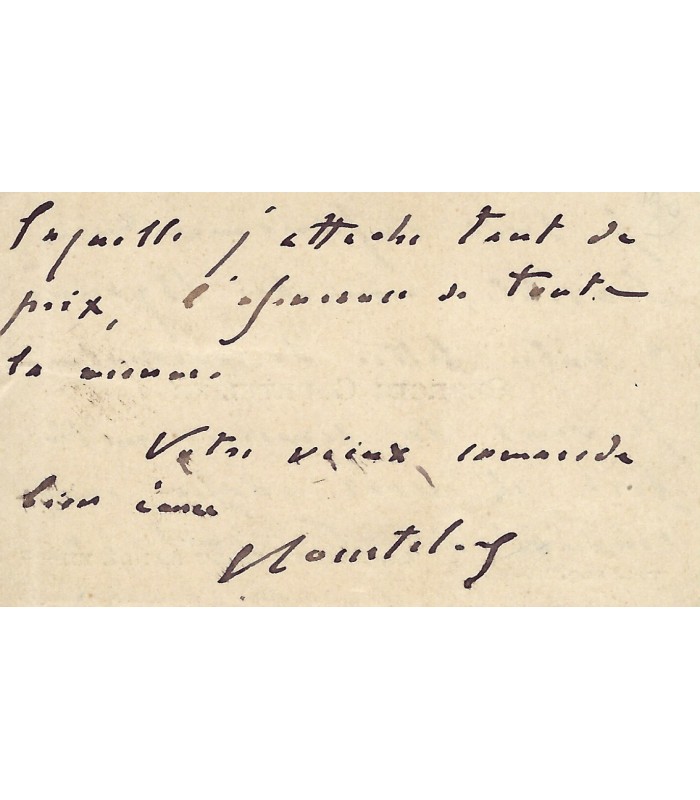 laquelle j'attache tant de
prix, l'assurance de toute
la mienne.
Votre vieux camarade
bien ému
GCourteline